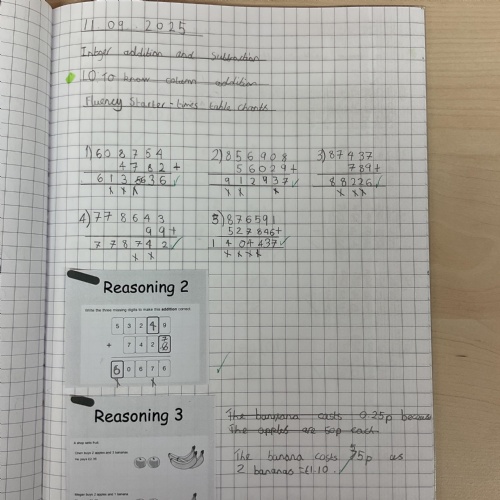 11.09.2025
Intger addition and subtraction
LO To know column addition
Fluency Starter - times table chants
1) 608754
4782 +
613536
2) 856908
56029 +
912937
3) 87437
789 +
88226
4) 778643
99 +
778742
5) 876591
527846 +
1404437
Reasoning 2
Write the three missing digits to make this addition correct.
5 3 2 4 9
+ 7 4 2
6 0 6 7 6
Reasoning 3
A shop sells fruit.
The banana costs 0.25p because
The apples are 50p each
The banana costs 75p as
2 bananas = £1.10.